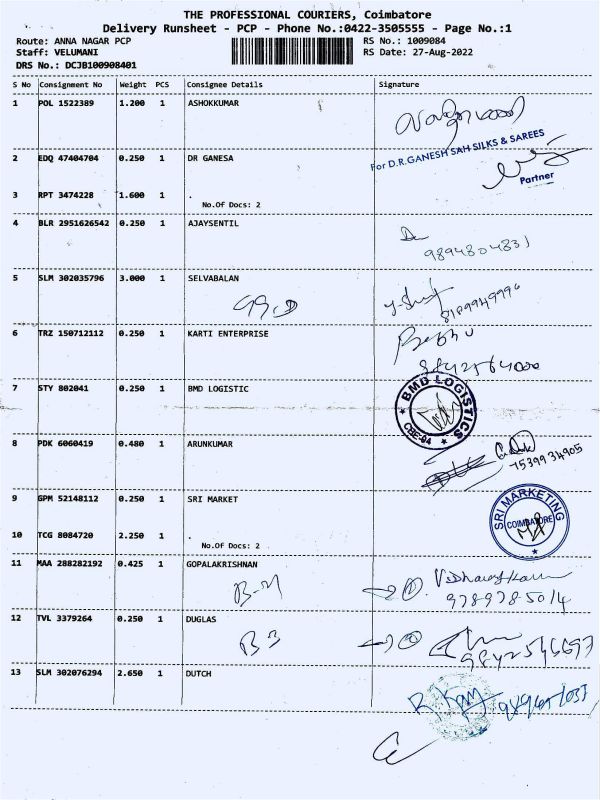 THE PROFESSIONAL COURIERS, Coimbatore
Delivery Runsheet - PCP - Phone No.:0422-3505555 - Page No.:1
Route: ANNA NAGAR PCP RS No.: 1009084
Staff: VELUMANI RS Date: 27-Aug-2022
DRS No.: DCJB100908401
S No Consignment No Weight PCS Consignee Details Signature
1 POL 1522389 1.200 1 ASHOKKUMAR
For D.R.GANESH SAH SILKS & SAREES
Partner
2 EDQ 47404704 0.250 1 DR GANESA
3 RPT 3474228 1.600 1 .
No.Of Docs: 2
4 BLR 2951626542 0.250 1 AJAYSENTIL
9894804831
5 SLM 302035796 3.000 1 SELVABALAN
8189949996
6 TRZ 150712112 0.250 1 KARTI ENTERPRISE
7 STY 802041 0.250 1 BMD LOGISTIC
BMD LOGISTICS
CBE-04
8 PDK 6060419 0.480 1 ARUNKUMAR
7539934905
9 GPM 52148112 0.250 1 SRI MARKET
SRI MARKETING
COIMBATORE
10 TCG 8084720 2.250 1 .
No.Of Docs: 2
11 MAA 288282192 0.425 1 GOPALAKRISHNAN
B-M
9789785014
12 TVL 3379264 0.250 1 DUGLAS
B3
9842546697
13 SLM 302076294 2.650 1 DUTCH